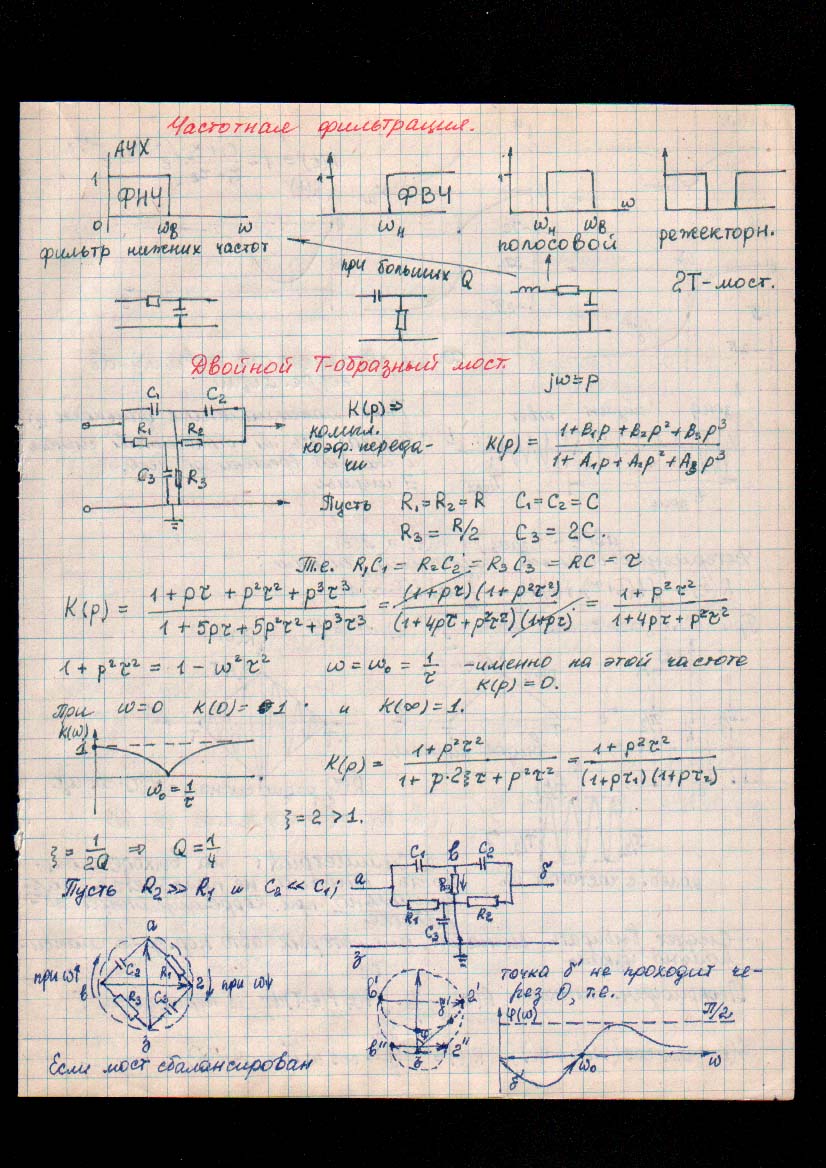 Частотная фильтрация.
АЧХ
1 ФНЧ 1 ФВЧ 1 ω
0 ωВ ω ωН ωН ωВ
фильтр нижних частот полосовой режекторн.
при больших Q 2Т-мост.
Двойной Т-образный мост.
jω=p
C₁ C₂
R₁ R₂
C₃ R₃
K(p) ⇒
компл.
коэф. переда-
чи
K(p) = (1+B₁p+B₂p²+B₃p³)/(1+A₁p+A₂p²+A₃p³)
Пусть R₁=R₂=R C₁=C₂=C
R₃=R/2 C₃=2C.
Т.е. R₁C₁=R₂C₂=R₃C₃=RC=τ
K(p) = (1+pτ+p²τ²+p³τ³)/(1+5pτ+5p²τ²+p³τ³) = (1+pτ)(1+p²τ²)/(1+4pτ+p²τ²)(1+pτ) = (1+p²τ²)/(1+4pτ+p²τ²)
1+p²τ² = 1-ω²τ² ω=ω₀=1/τ - именно на этой частоте
K(p)=0.
При ω=0 K(0)=1 и K(∞)=1.
K(ω)
1
ω₀=1/τ
K(p) = (1+p²τ²)/(1+p·2ξτ+p²τ²) = (1+p²τ²)/((1+pτ₁)(1+pτ₂))
ξ=2>1.
ξ=1/2Q ⇒ Q=1/4
Пусть R₂≫R₁ и C₂≪C₁;
C₁ в C₂
а R₃ б
R₁ R₂
C₃
з
а
C₂ R₁
при ω↑ в г при ω↓
R₃ C₃
з
в' б' г'
φ
в'' г''
з
точка б' не проходит че-
рез 0, т.е.
φ(ω) π/2
ω₀ ω
Если мост сбалансирован